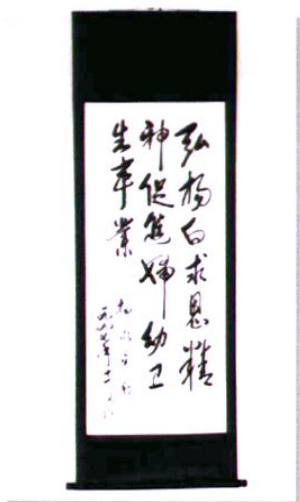 弘杨白求恩精
神促进妇幼卫
生事业